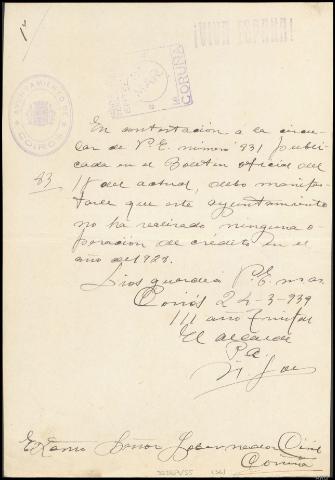 1º
¡VIVA ESPAÑA!
CORUÑA
AYUNTAMIENTO DE
COIROS
En contestación a la circu-
lar de V.E. número 831 publi-
cada en el Boletin oficial del
17 del actual, debo manifes-
tarle que este ayuntamiento
no ha realizado ninguna o-
peracion de credito en el
año de 1938.
83
Dios guarde a V.E. m. as.
Coirós 24-3-939
III año triunfal
El alcalde
P.A.
Exmo Señor Gobernador Civil
Coruña